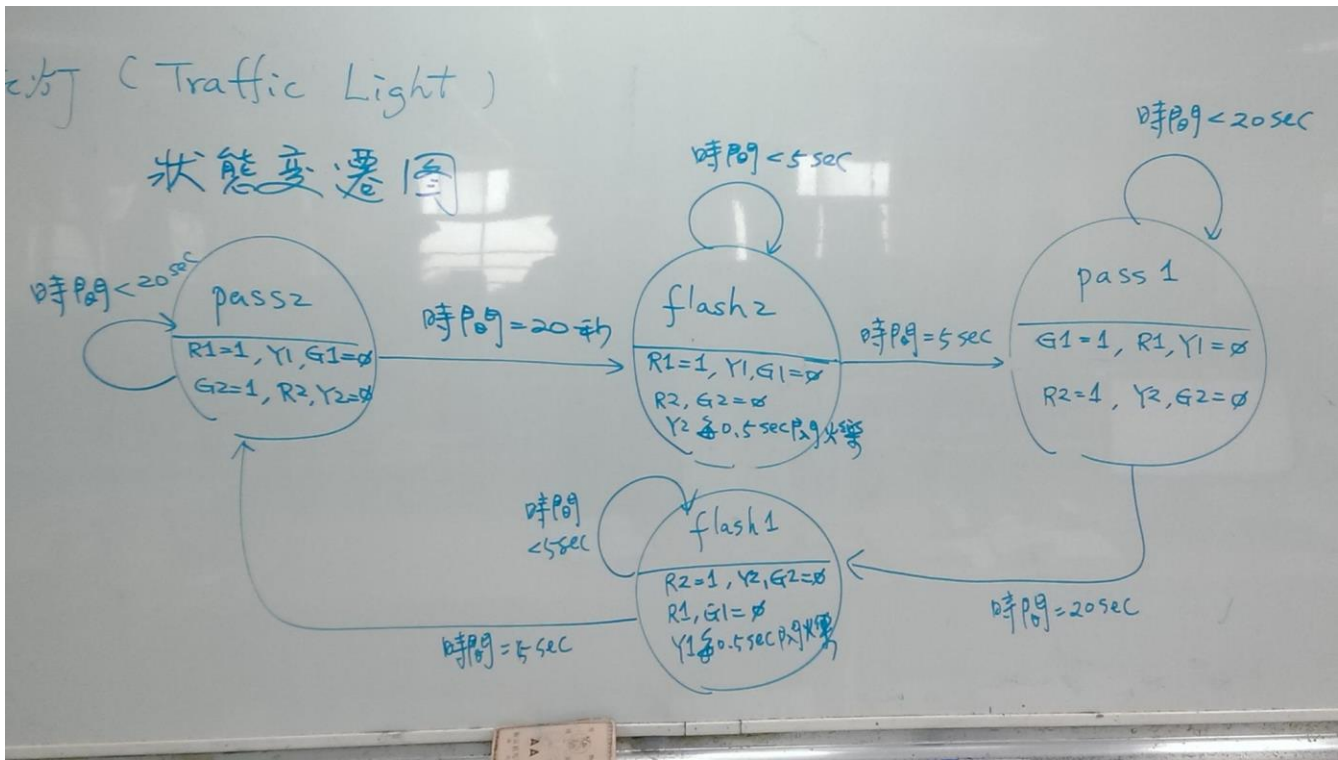 灯 (Traffic Light)
狀態変遷図
時間<20sec
pass2
R1=1, Y1, G1=ø
G2=1, R2, Y2=ø
時間=20秒
時間<5sec
flash2
R1=1, Y1, G1=ø
R2, G2=ø
Y2 每0.5sec閃爍
時間=5sec
時間<20sec
pass 1
G1=1, R1, Y1=ø
R2=1, Y2, G2=ø
時間=20sec
時間
<5sec
flash1
R2=1, Y2, G2=ø
R1, G1=ø
Y1每0.5sec閃爍
時間=5sec